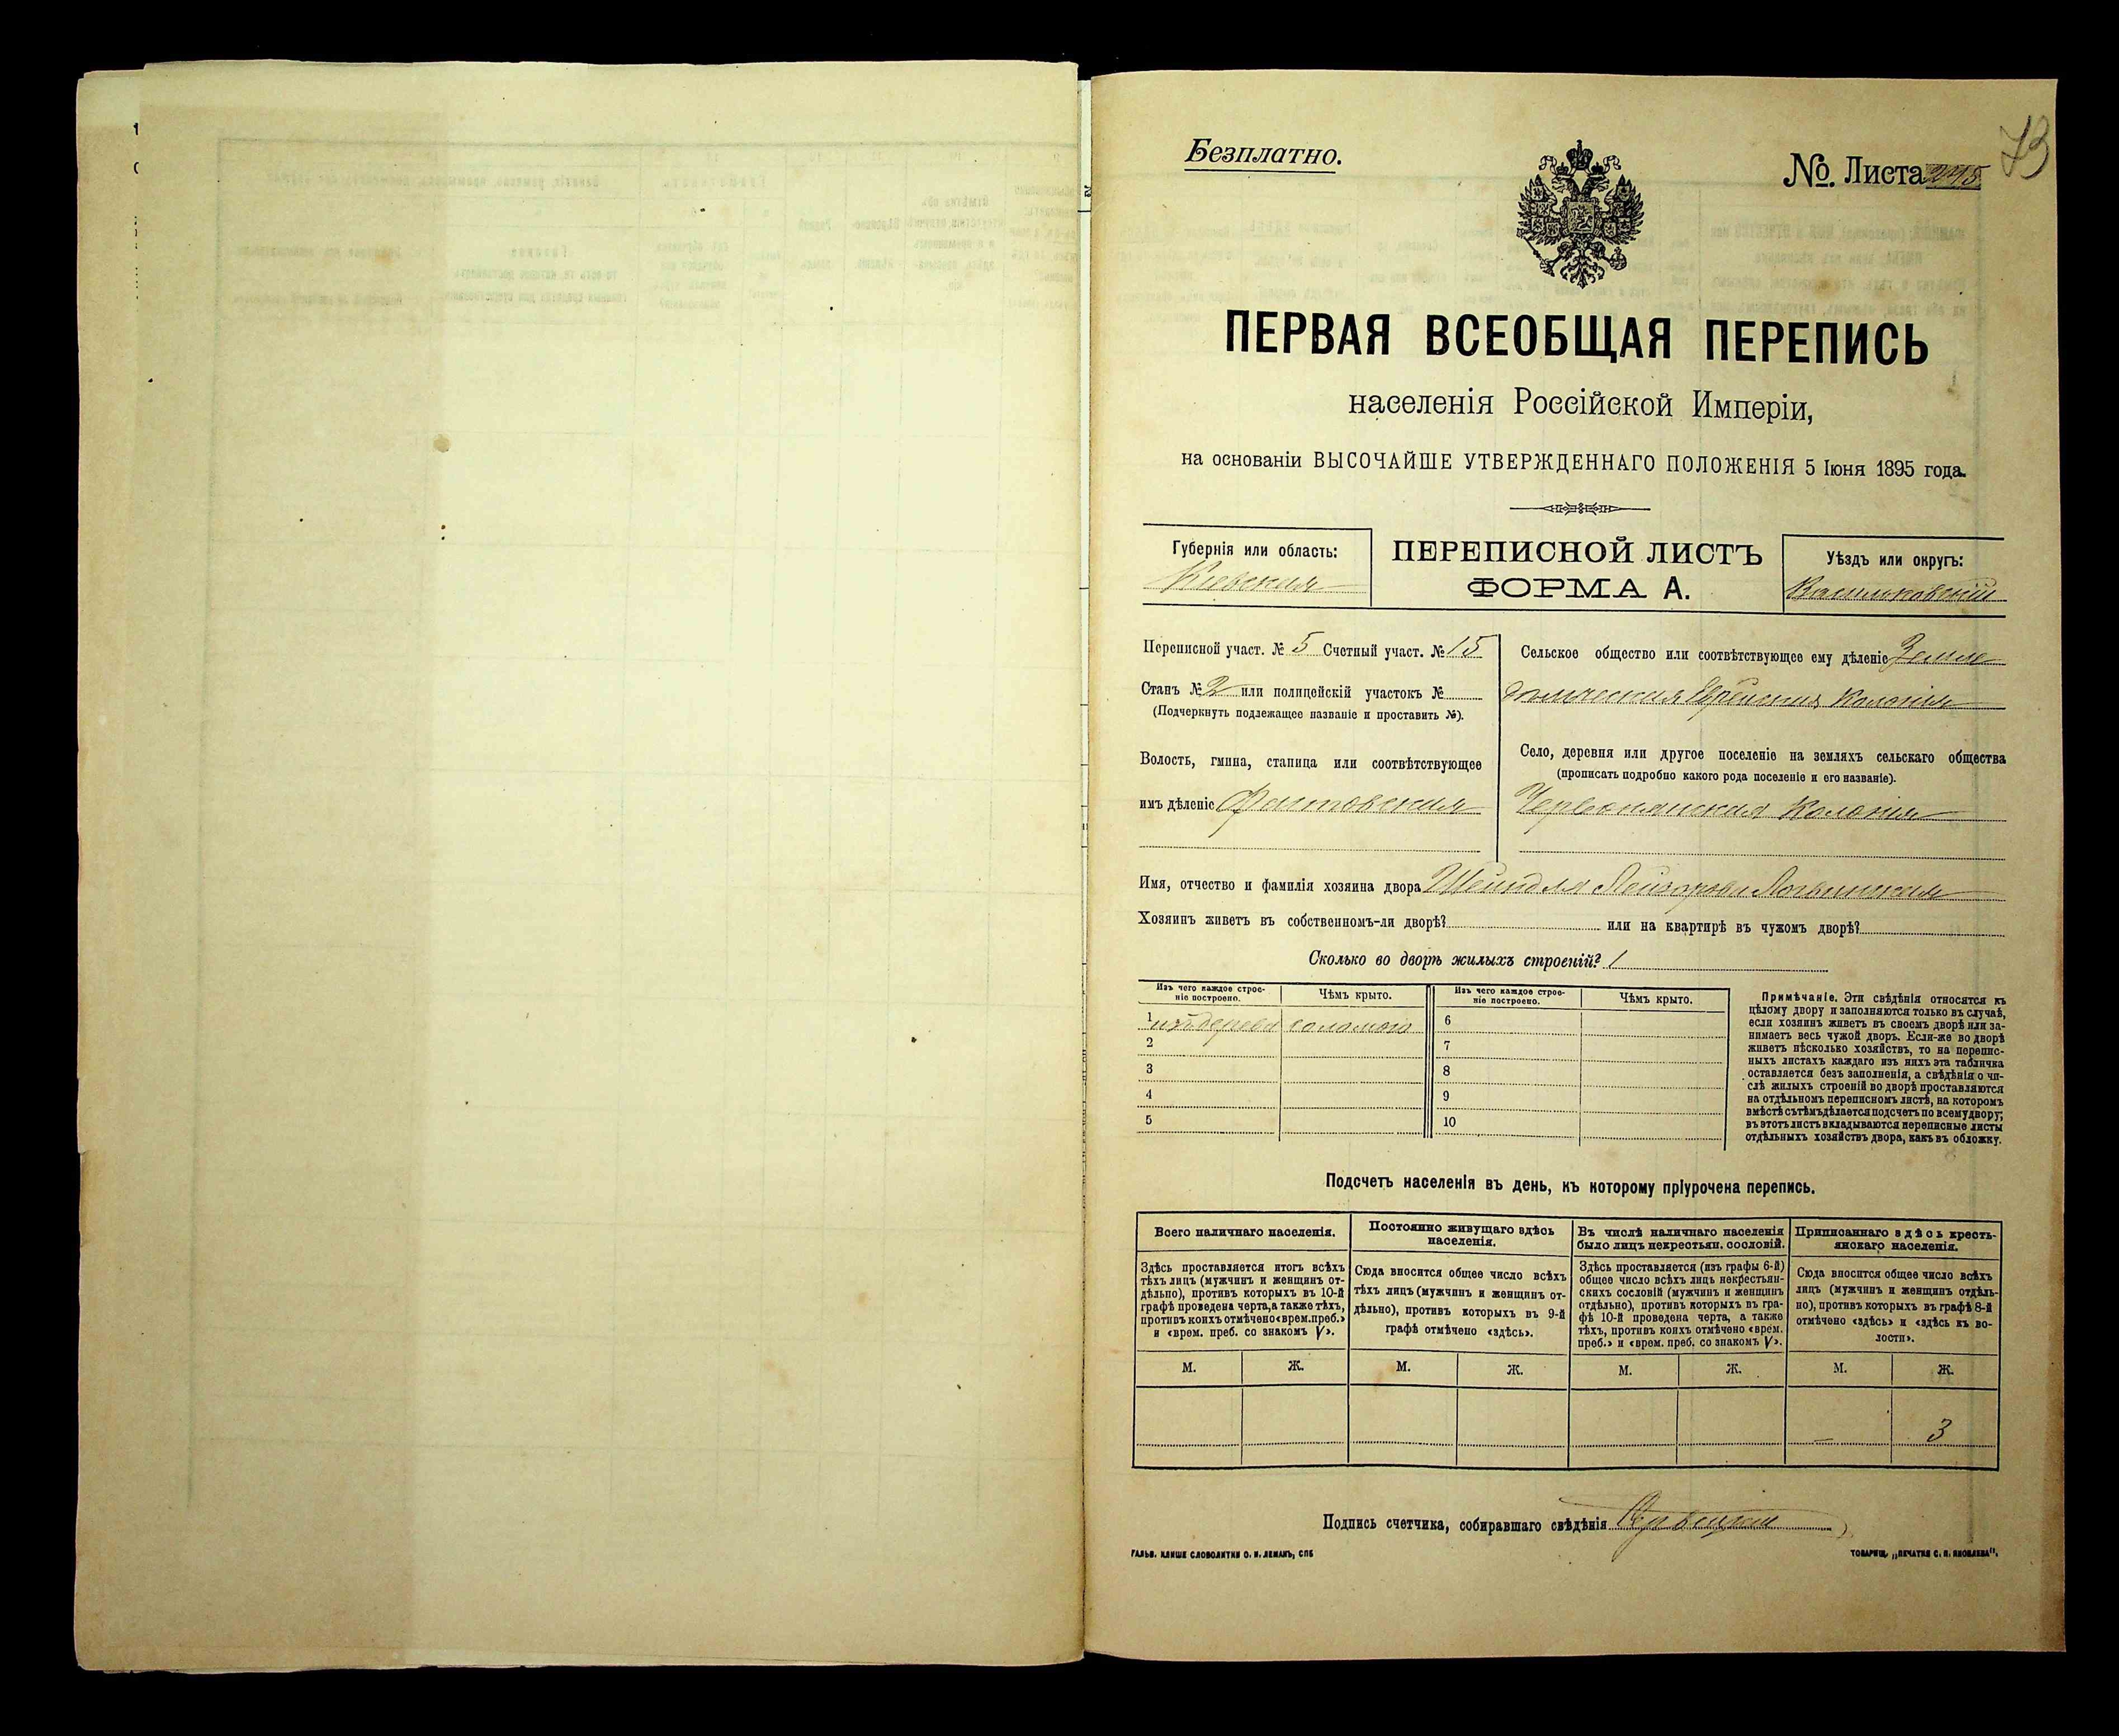 Безплатно.
№. Листа
73
ПЕРВАЯ ВСЕОБЩАЯ ПЕРЕПИСЬ
населенія Россійской Имперіи,
на основаніи ВЫСОЧАЙШЕ УТВЕРЖДЕННАГО ПОЛОЖЕНІЯ 5 Іюня 1895 года.
Губернія или область:
Кіевская
ПЕРЕПИСНОЙ ЛИСТЪ
ФОРМА А.
Уѣздъ или округъ:
Васильковскій
Переписной участ. № 5 Счетный участ. № 15
Станъ № 2 или полицейскій участокъ №
(Подчеркнуть подлежащее названіе и проставить №).
Волость, гмина, станица или соотвѣтствующее
имъ дѣленіе Фастовская
Сельское общество или соотвѣтствующее ему дѣленіе Земле
дѣльческая Еврейская Колонія
Село, деревня или другое поселеніе на земляхъ сельскаго общества
(прописать подробно какого рода поселеніе и его названіе).
Червонянская Колонія
Имя, отчество и фамилія хозяина двора Шейндля
Хозяинъ живетъ въ собственномъ-ли дворѣ? или на квартирѣ въ чужомъ дворѣ?
Сколько во дворѣ жилыхъ строеній? 1
Изъ чего каждое строе-
ніе построено.
Чѣмъ крыто.
Изъ чего каждое строе-
ніе построено.
Чѣмъ крыто.
1 изъ дерева соломою 6
2 7
3 8
4 9
5 10
Примѣчаніе. Эти свѣдѣнія относятся къ
цѣлому двору и заполняются только въ случаѣ,
если хозяинъ живетъ въ своемъ дворѣ или за-
нимаетъ весь чужой дворъ. Если-же во дворѣ
живетъ нѣсколько хозяйствъ, то на перепис-
ныхъ листахъ каждаго изъ нихъ эта табличка
оставляется безъ заполненія, а свѣдѣнія о чи-
слѣ жилыхъ строеній во дворѣ проставляются
на отдѣльномъ переписномъ листѣ, на которомъ
вмѣстѣ съ тѣмъ дѣлается подсчетъ по всему двору;
въ этотъ листъ вкладываются переписные листы
отдѣльныхъ хозяйствъ двора, какъ въ обложку.
Подсчетъ населенія въ день, къ которому пріурочена перепись.
Всего наличнаго населенія.
Здѣсь проставляется итогъ всѣхъ
тѣхъ лицъ (мужчинъ и женщинъ от-
дѣльно), противъ которыхъ въ 10-й
графѣ проведена черта, а также тѣхъ,
противъ коихъ отмѣчено «врем. преб.»
и «врем. преб. со знакомъ V».
М. Ж.
Постоянно живущаго здѣсь
населенія.
Сюда вносится общее число всѣхъ
тѣхъ лицъ (мужчинъ и женщинъ от-
дѣльно), противъ которыхъ въ 9-й
графѣ отмѣчено «здѣсь».
М. Ж.
Въ числѣ наличнаго населенія
было лицъ некрестьян. сословій.
Здѣсь проставляется (изъ графы 6-й)
общее число всѣхъ лицъ некрестьян-
скихъ сословій (мужчинъ и женщинъ
отдѣльно), противъ которыхъ въ гра-
фѣ 10-й проведена черта, а также
тѣхъ, противъ коихъ отмѣчено «врем.
преб.» и «врем. преб. со знакомъ V».
М. Ж.
Приписаннаго здѣсь кресть-
янскаго населенія.
Сюда вносится общее число всѣхъ
лицъ (мужчинъ и женщинъ отдѣль-
но), противъ которыхъ въ графѣ 8-й
отмѣчено «здѣсь» и «здѣсь къ во-
лости».
М. Ж.
— 3
Подпись счетчика, собиравшаго свѣдѣнія
ГАЛЬВ. КЛИШЕ СЛОВОЛИТНИ О. И. ЛЕМАНЪ, СПБ
ТОВАРИЩ. „ПЕЧАТНЯ С. П. ЯКОВЛЕВА“.